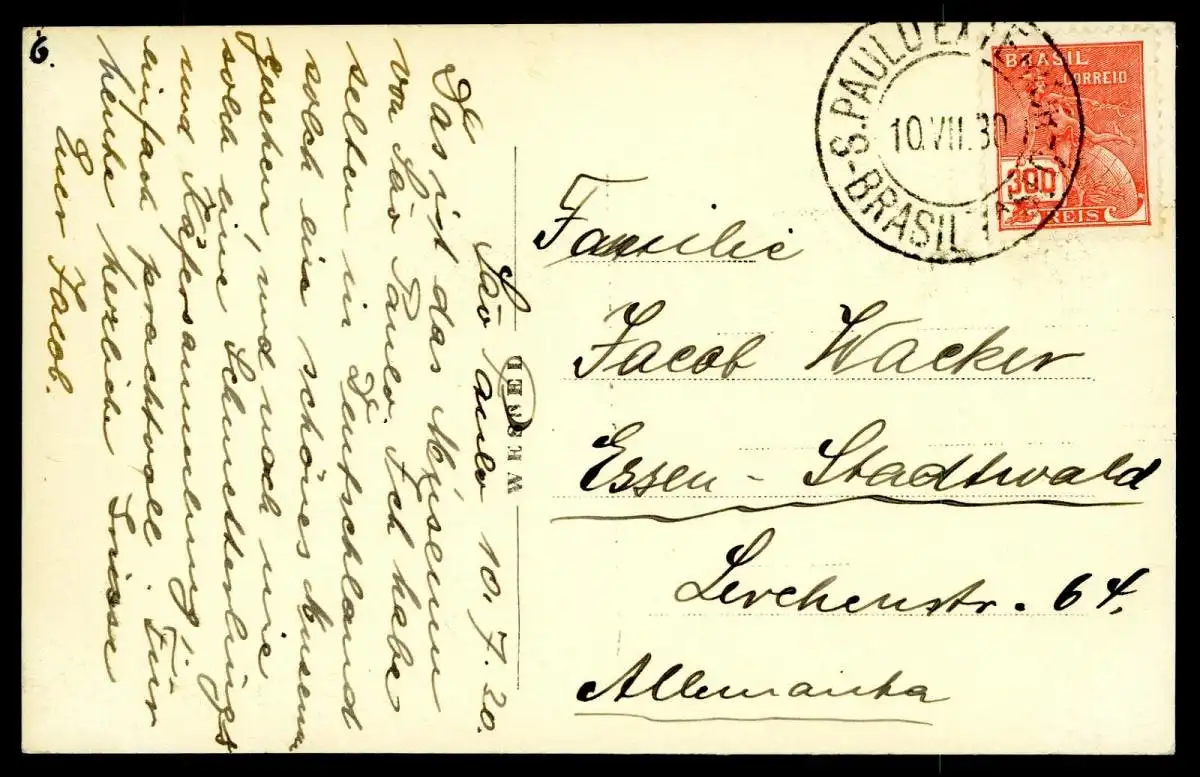 6.
São Paulo 10.7.30.
Das ist das Museum
von São Paulo. Ich habe
selten in Deutschland
solch ein schönes Museum
gesehen, und noch nie
solch eine Schmetterlings
und Käfersammlung,
einfach prachtvoll. Für
heute herzliche Grüsse
Euer Jacob.
WESSEL
S. PAULO
BRASIL
10.VII.30
BRASIL
CORREIO
300
REIS
Familie
Jacob Wacker
Essen - Stadtwald
Lerchenstr. 64.
Allemanha